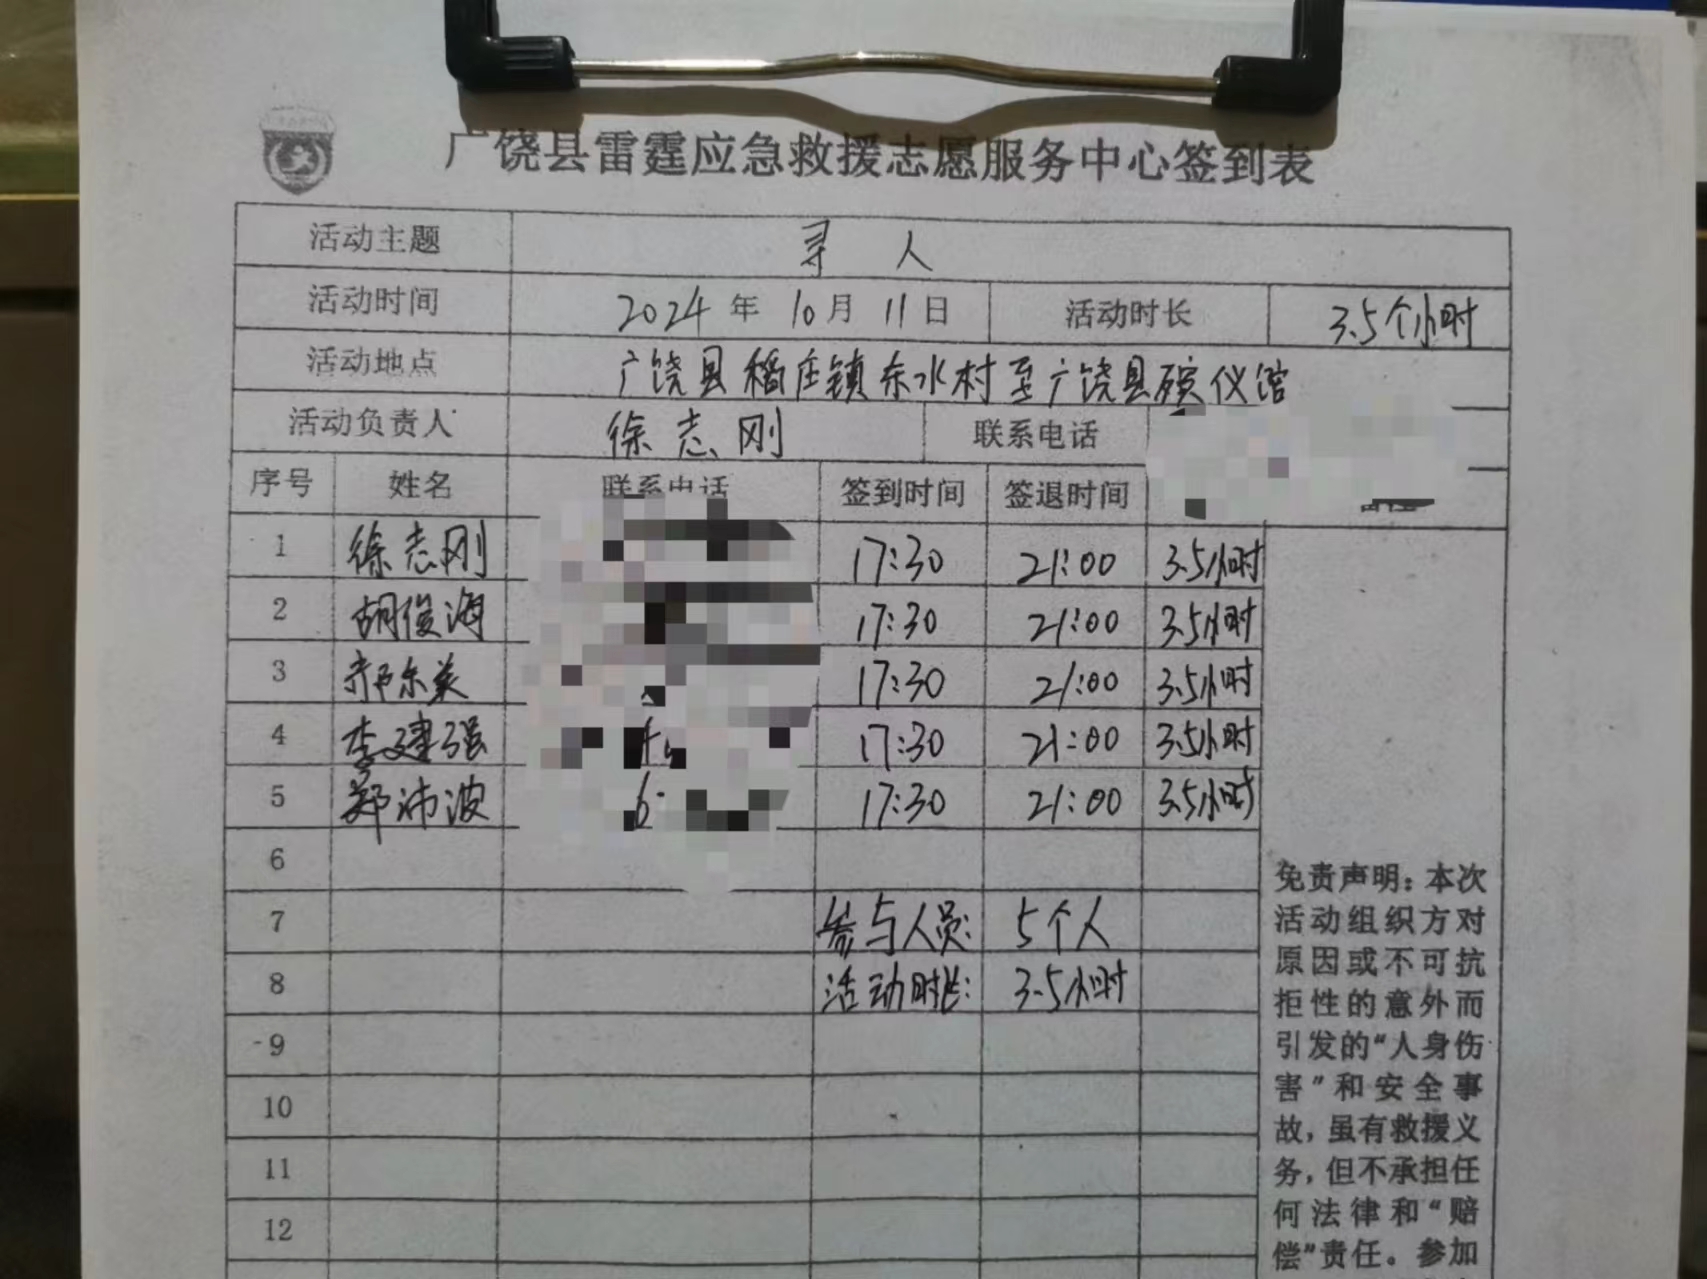 广饶县雷霆应急救援志愿服务中心签到表
活动主题 寻人
活动时间 2024年10月11日 活动时长 3.5个小时
活动地点 广饶县稻庄镇东水村至广饶县殡仪馆
活动负责人 徐志刚 联系电话
序号 姓名 联系电话 签到时间 签退时间
1 徐志刚 17:30 21:00 3.5小时
2 胡俊海 17:30 21:00 3.5小时
3 17:30 21:00 3.5小时
4 李建强 17:30 21:00 3.5小时
5 郑沛波 17:30 21:00 3.5小时
6
7 参与人员: 5个人
8 活动时长: 3.5小时
9
10
11
12
免责声明:本次
活动组织方对
原因或不可抗
拒性的意外而
引发的“人身伤
害”和安全事
故,虽有救援义
务,但不承担任
何法律和“赔
偿”责任。参加